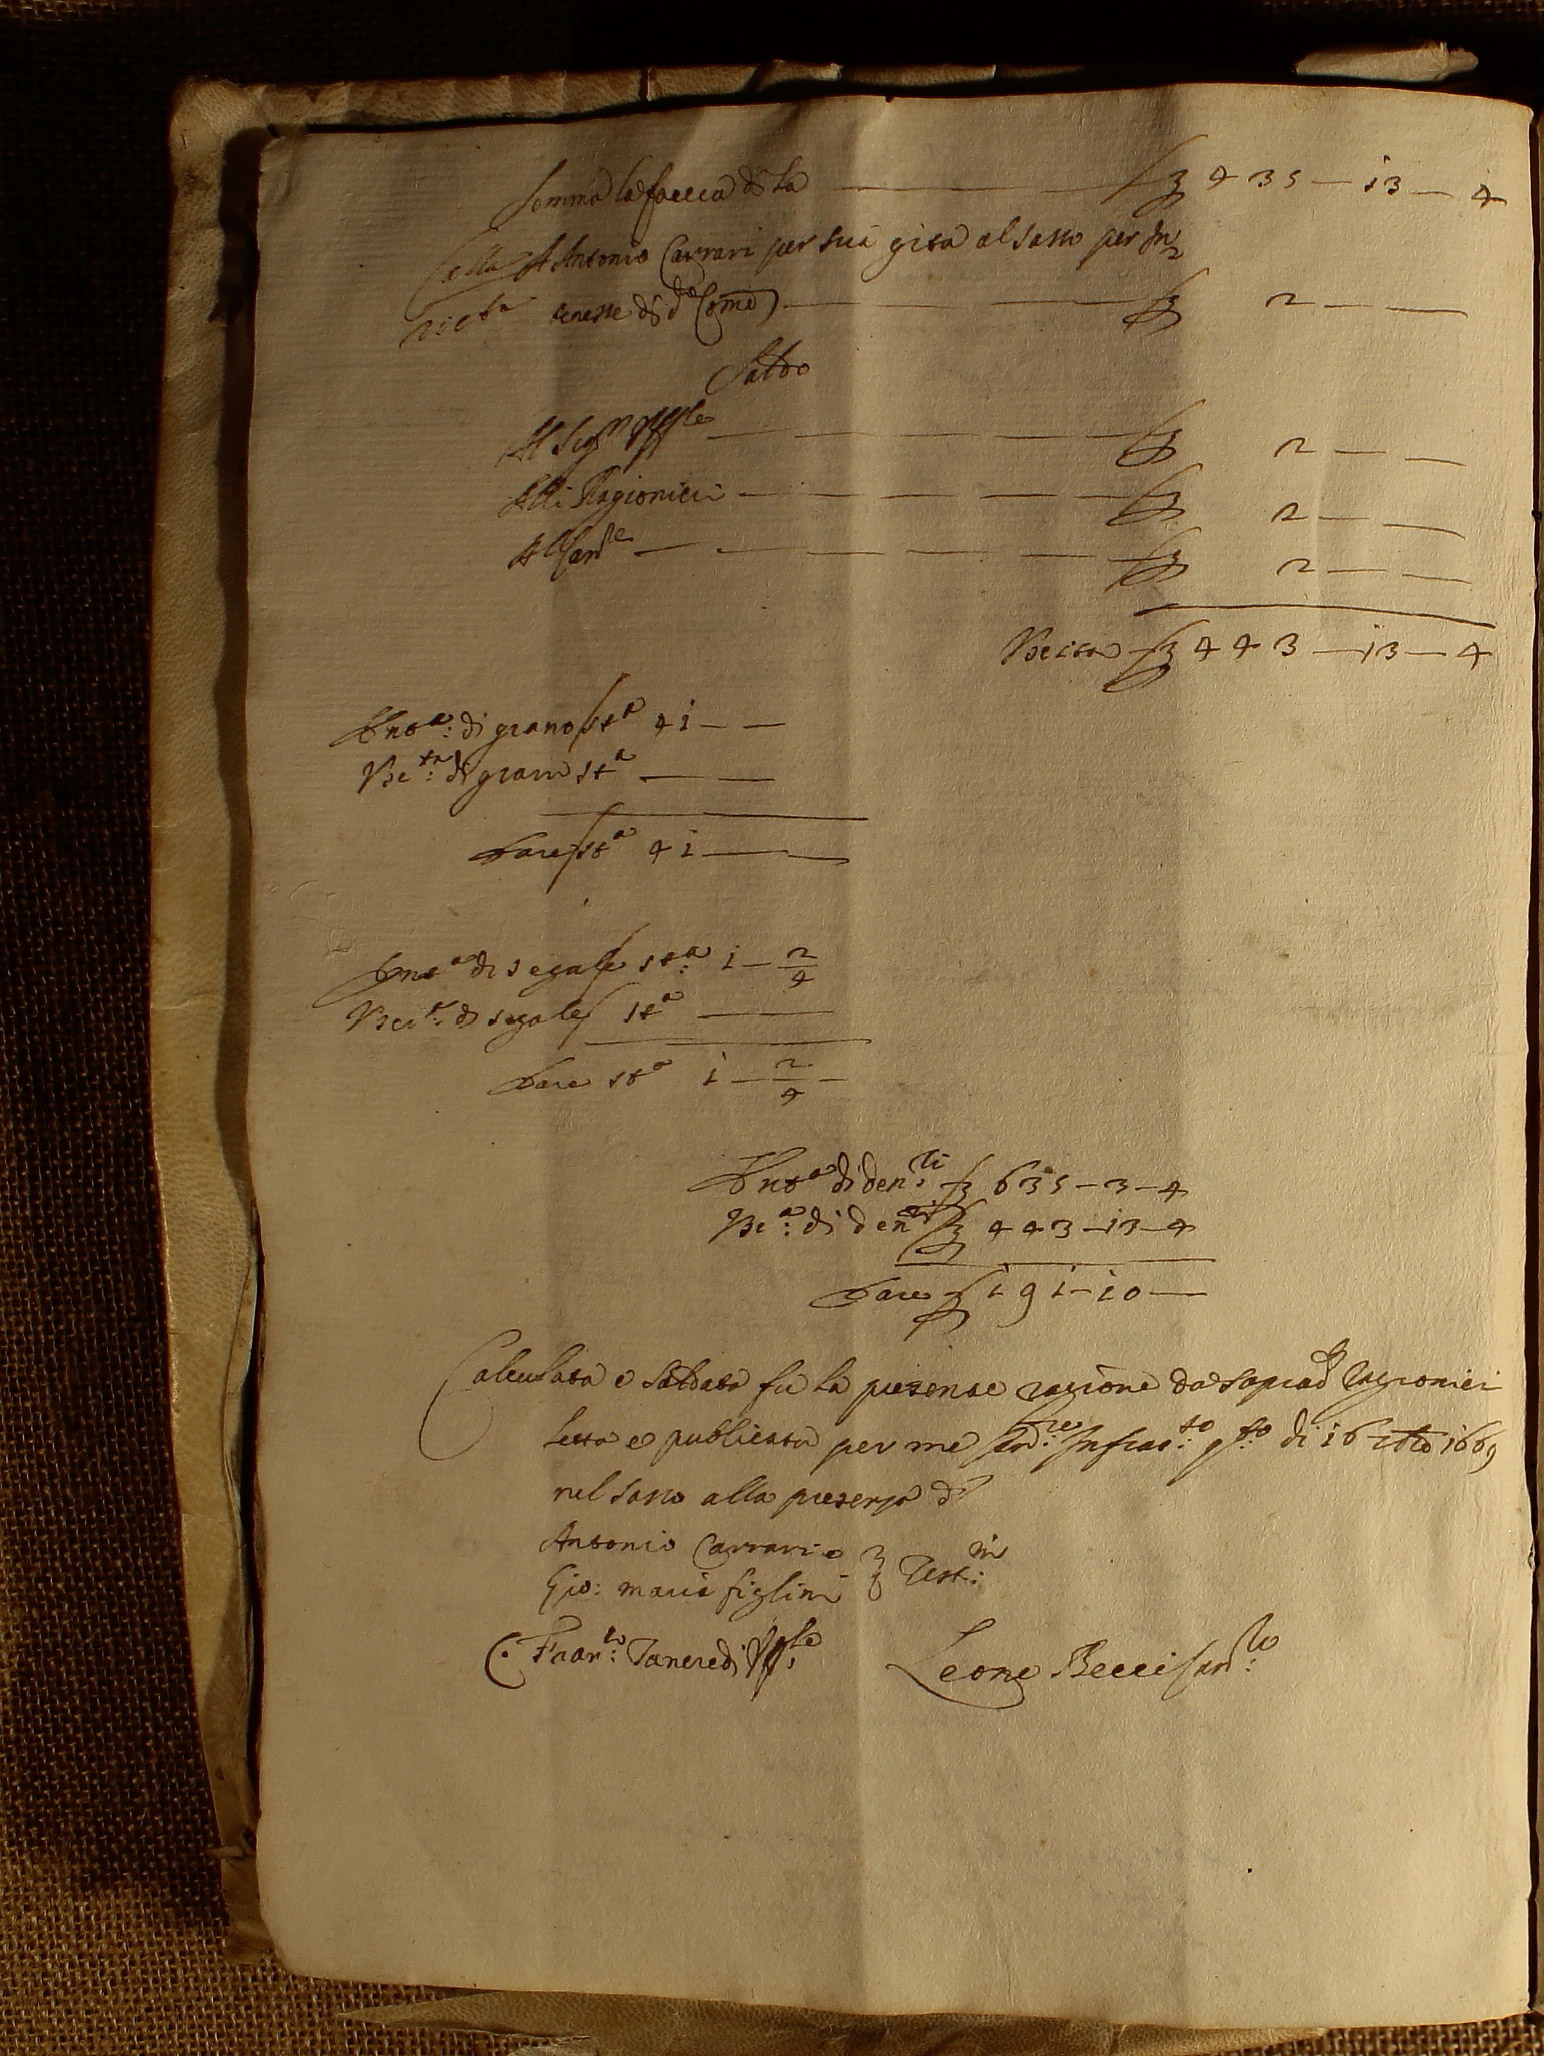 Somma la faccia di la — £ 435 — 13 — 4
A Antonio Carrari per sua gita al Sasso per In
teresse di d.a Com.à — £ 2 — —
Saldo
Al Sig.r Uff.le — £ 2 — —
Alli Ragionieri — £ 2 — —
Al Can.re — £ 2 — —
Uscita £ 443 — 13 — 4
Ent.a: di grano st.a 41 — —
Us.ta: di grano st.a — —
Dare st.a 41 — —
Ent.a di segale st.a: 1 — 2/4
Usc.ta: di segale st.a —
Dare st.a 1 — 2/4 —
Ent.a di den.ri: £ 635 — 3 — 4
Us.a: di den.ri £ 443 — 13 — 4
Dare £ 191 — 10 —
Calculata e saldata fu la presente ragione da soprad.i ragionieri
letta e publicata per me Can.re: Infras.to: q.to: di 16 1669
nel Sasso alla presenza di
Antonio Carrari e
Gio: Maria figlini } Test.ni:
Fran.co: Tancredi Uff.le: Leone Becci Can.re: